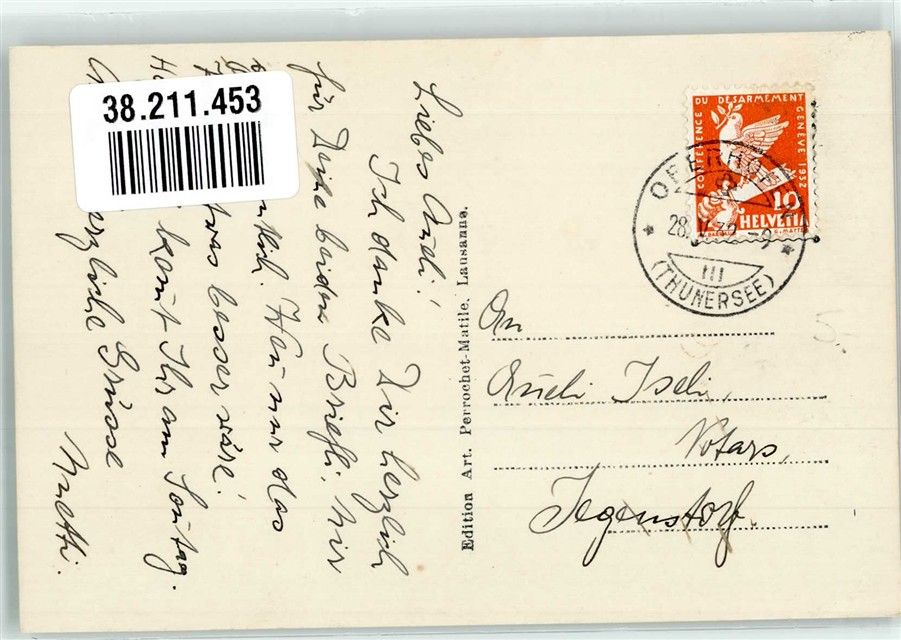 38.211.453
Liebs Aueli!
Ich danke Dir herzlich
für Deine beiden Briefli. Mir
Wenn nur das
besser wäre!
komt Ihr am Sontag.
Herzliche Grüsse
Muetti.
Edition Art. Perrochet-Matile. Lausanne.
CONFÉRENCE DU DÉSARMEMENT GENÈVE 1932
10
HELVETIA
OBERHOFEN
28. 32 -9
III
(THUNERSEE)
An
Aueli Iseli,
Notars,
Jegenstorf.